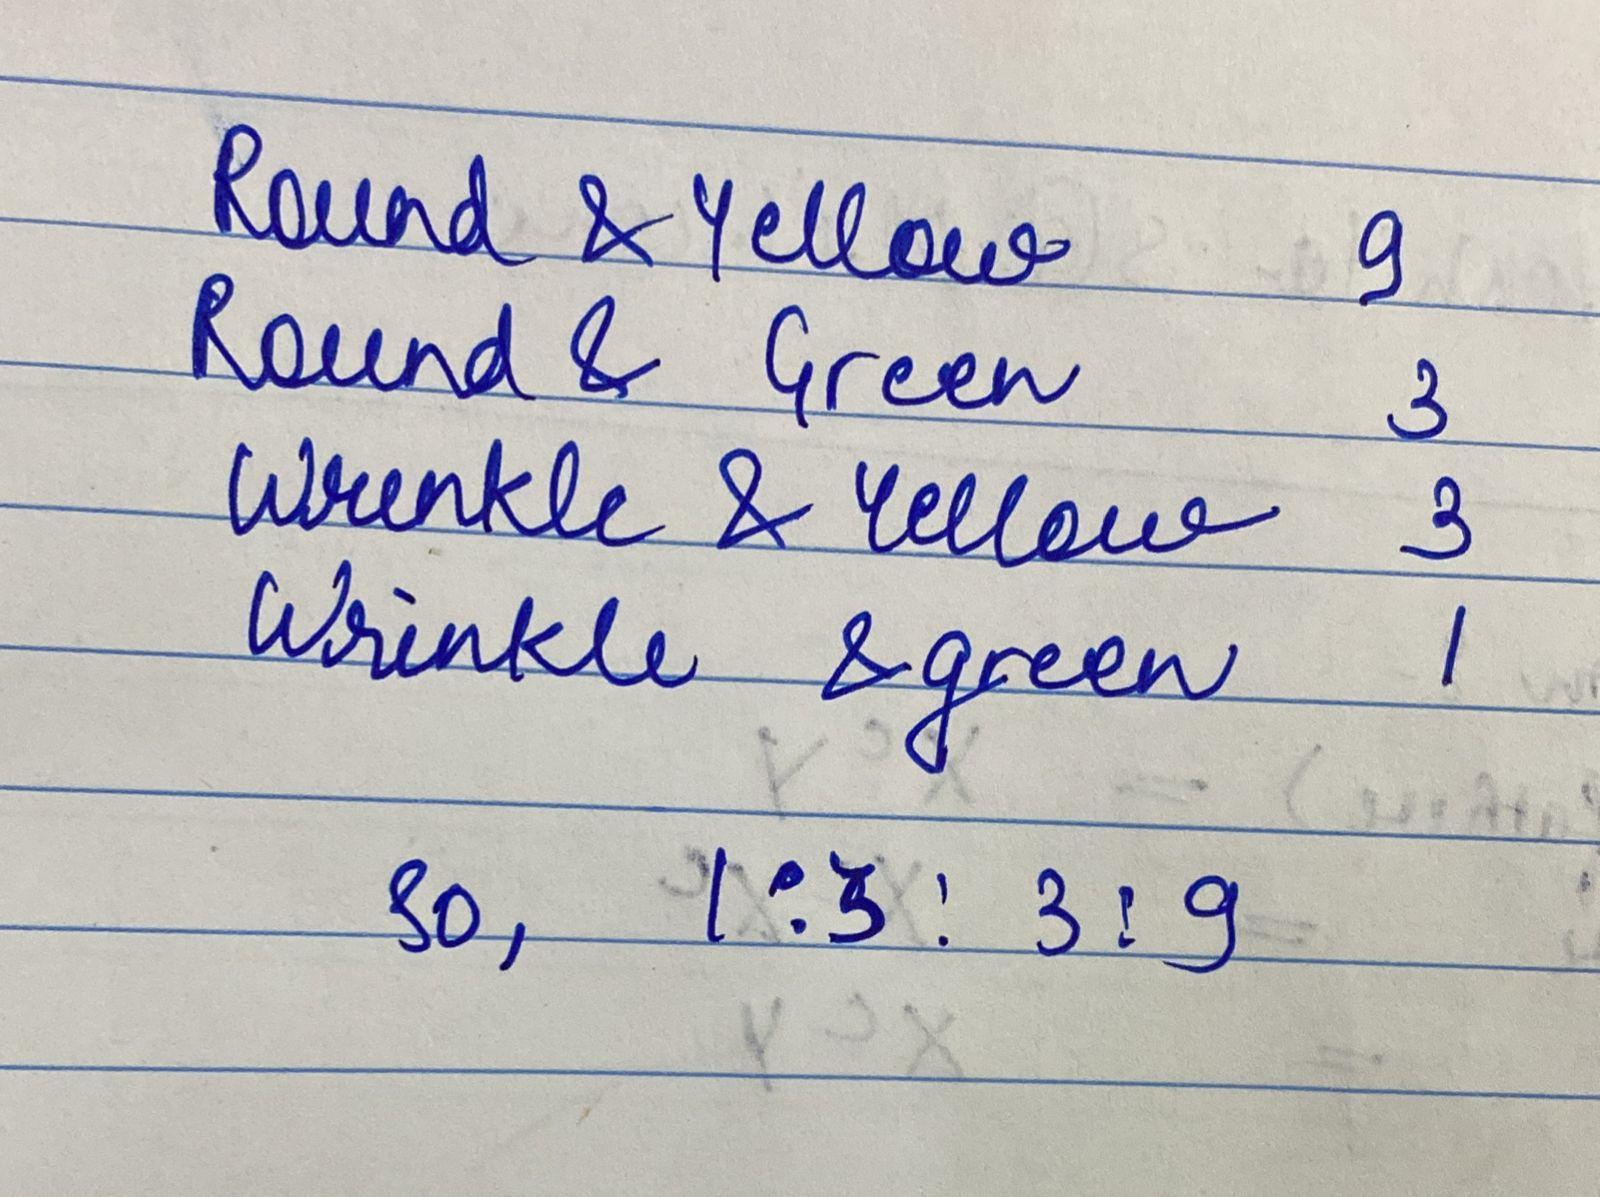 Round & Yellow 9
Round & Green 3
Wrinkle & Yellow 3
Wrinkle & green 1
So, 1:3:3:9